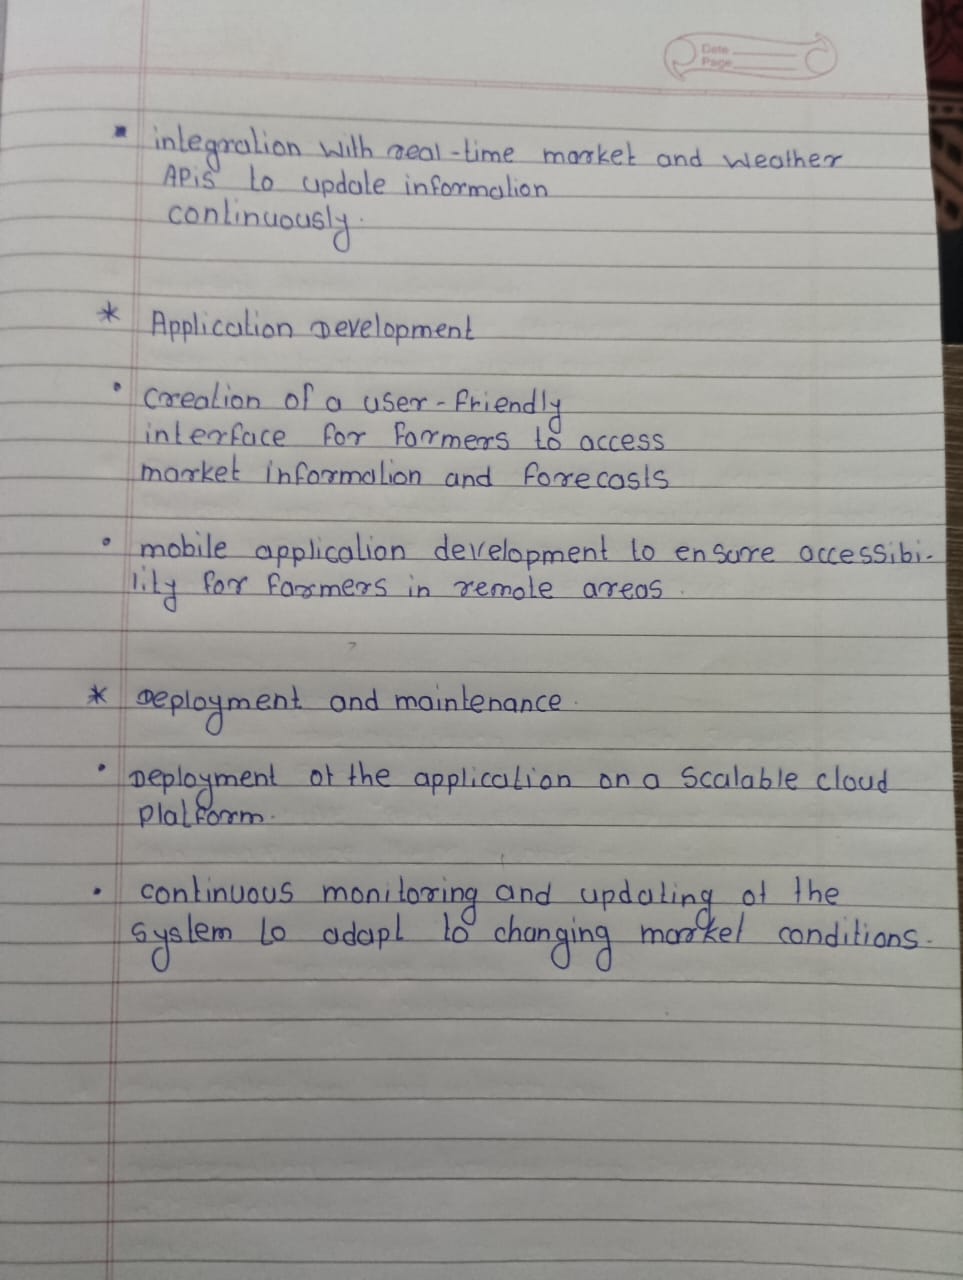 Date
Page
▪ integration with real-time market and weather
APIs to update information
continuously.
* Application Development
• creation of a user-friendly
interface for farmers to access
market information and forecasts
• mobile application development to ensure accessibi-
lity for farmers in remote areas.
* Deployment and maintenance.
• Deployment of the application on a scalable cloud
platform.
• continuous monitoring and updating of the
system to adapt to changing market conditions.